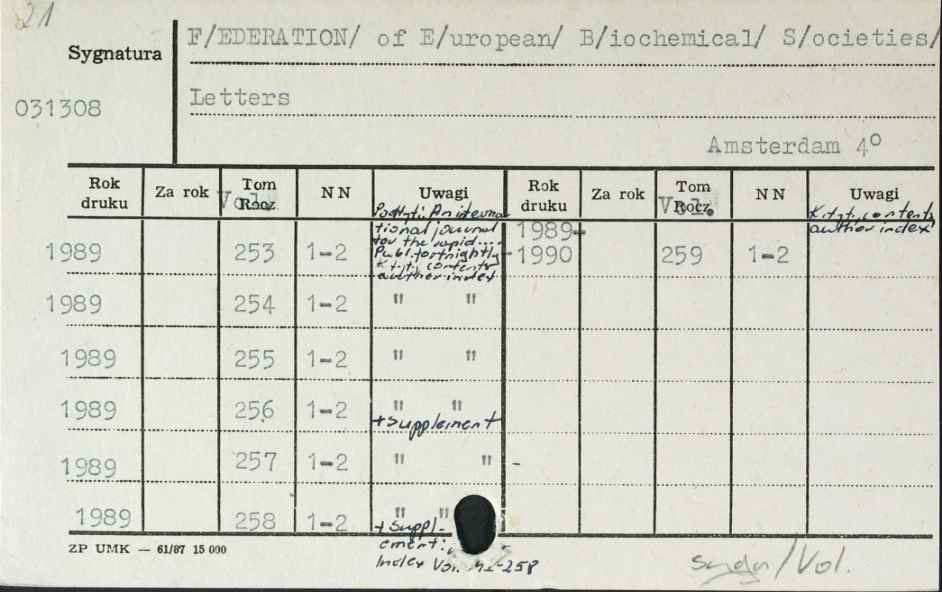 21
Sygnatura F/EDERATION/ of E/uropean/ B/iochemical/ S/ocieties/
031308 Letters
Amsterdam 4º
Rok druku Za rok Tom Rocz. Vol. NN Uwagi Rok druku Za rok Tom Rocz. Vol. NN Uwagi
1989 253 1-2 Podtyt: An interna
tional journal
for the rapid...
Publ. fortnightly
K.tyt, contents
author index
1989-
1990 259 1-2 K.tyt, contents,
author index
1989 254 1-2 " "
1989 255 1-2 " "
1989 256 1-2 " "
+Supplement
1989 257 1-2 " " -
1989 258 1-2 " "
+Suppl-
ement:
Index Vol. -258
ZP UMK — 61/87 15 000
/Vol.